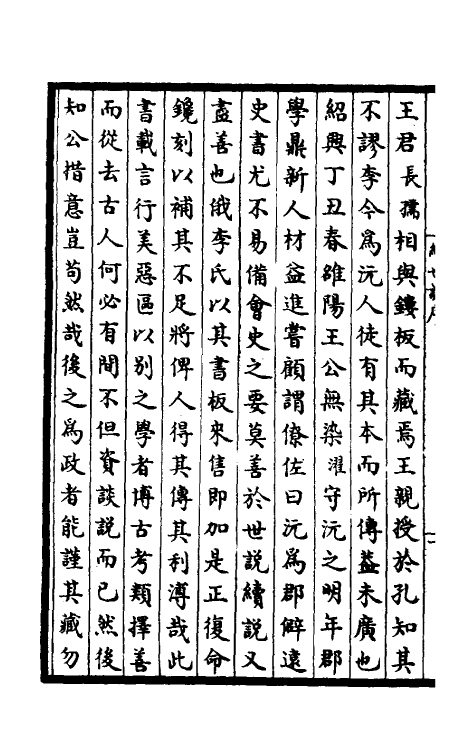 王君長孺相與鏤板而藏焉王親授於孔知其
不謬李今爲沅人徒有其本而所傳益未廣也
紹興丁丑春雒陽王公無染濯守沅之明年郡
學鼎新人材益進嘗顧謂僚佐曰沅爲郡僻遠
史書尤不易備會史之要莫善於世說續說又
盡善也俄李氏以其書板來售即加是正復命
鑱刻以補其不足將俾人得其傳其利溥哉此
書載言行美惡區以別之學者博古考類擇善
而從去古人何必有間不但資談説而已然後
知公措意豈苟然哉後之爲政者能謹其藏勿